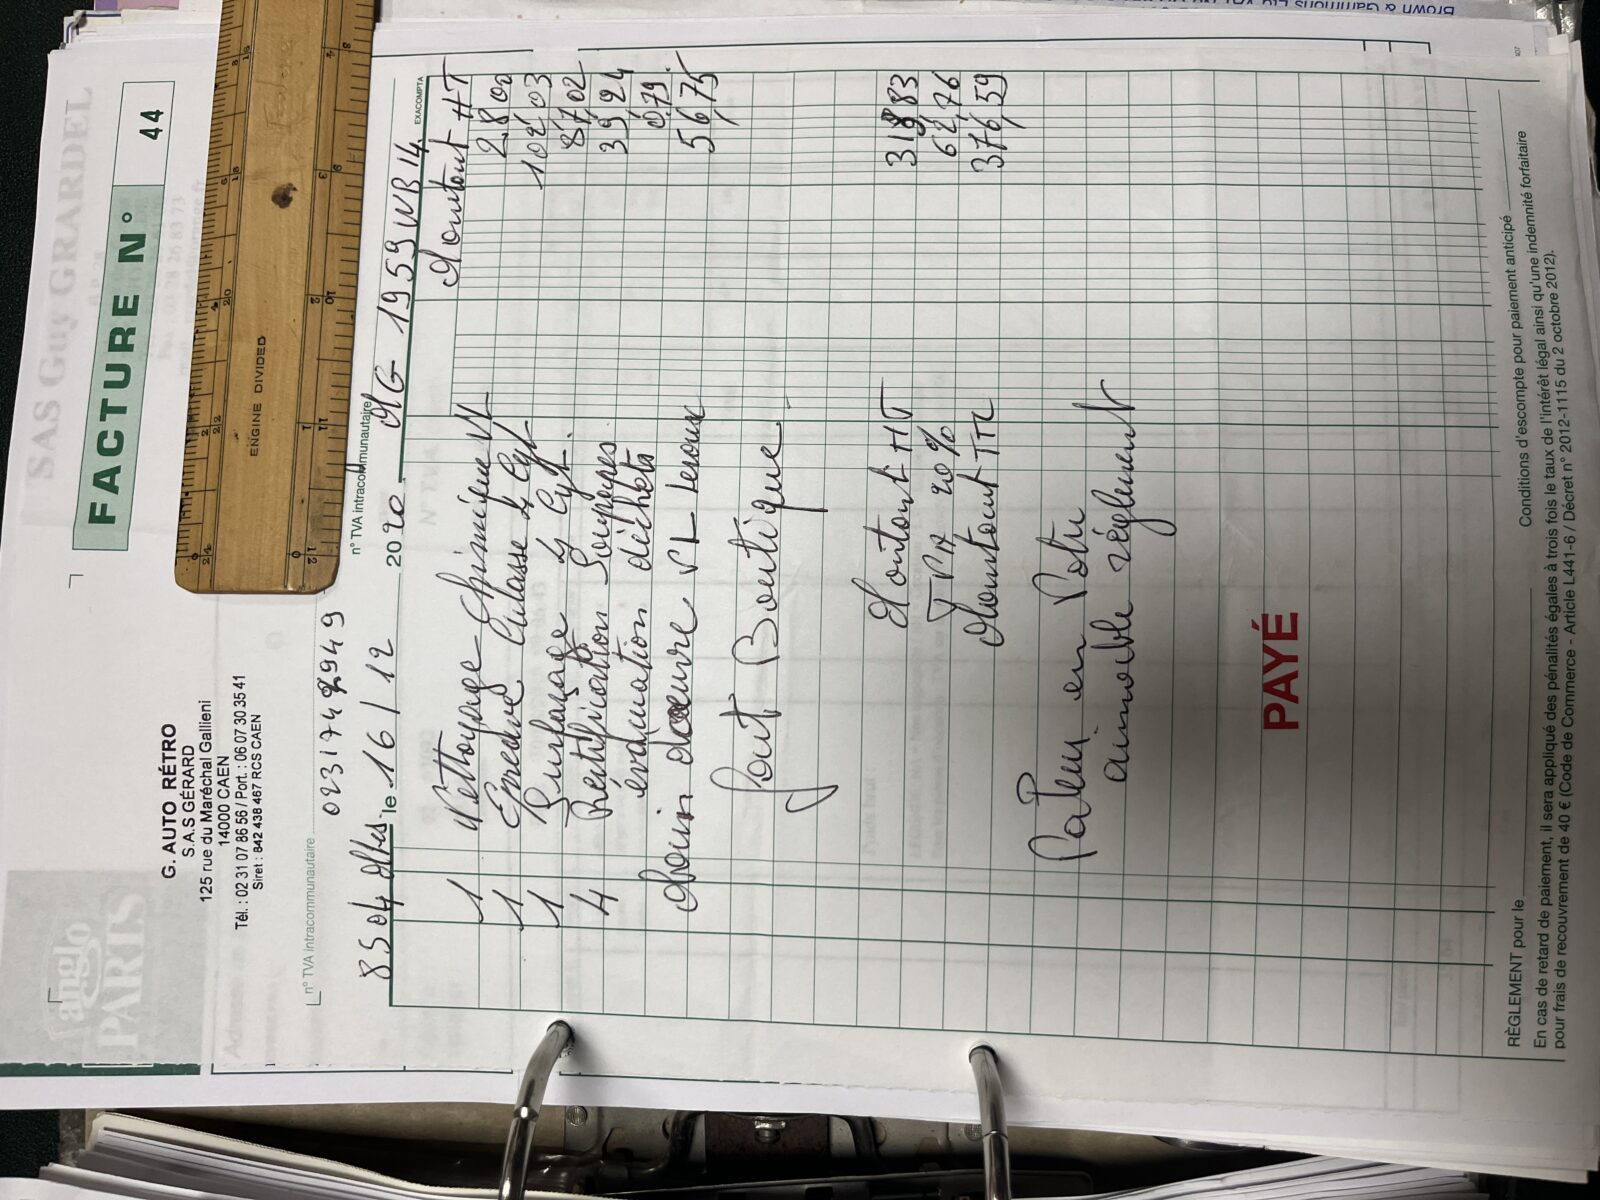 Brown & Gammons Ltd
SAS Guy GRARDEL
anglo
PARTS
FACTURE N° 44
G. AUTO RÉTRO
S.A.S GÉRARD
125 rue du Maréchal Gallieni
14000 CAEN
Tél. : 02 31 07 86 56 / Port. : 06 07 30 35 41
Siret : 842 438 467 RCS CAEN
ENGINE DIVIDED
0231742949
n° TVA intracommunautaire
n° TVA intracommunautaire
le 16/12 2020 MG 1959 WB 14
EXACOMPTA
Montant HT
1 Nettoyage Chimique VL 28,00
1 Epreuve Culasse 4 Cyl 102,03
1 Surfaçage 4 Cyl. 87,02
4 Réctification Soupapes 39,24
évacuation déchets 0,79
Main d'œuvre VL Leroux 56,75
Joint Boutique
Montant HT 313,83
TVA 20% 62,76
Montant TTC 376,59
Payé en Votre
aimable réglement
PAYÉ
RÈGLEMENT pour le
Conditions d'escompte pour paiement anticipé
En cas de retard de paiement, il sera appliqué des pénalités égales à trois fois le taux de l'intérêt légal ainsi qu'une indemnité forfaitaire
pour frais de recouvrement de 40 € (Code de Commerce - Article L441-6 / Décret n° 2012-1115 du 2 octobre 2012).